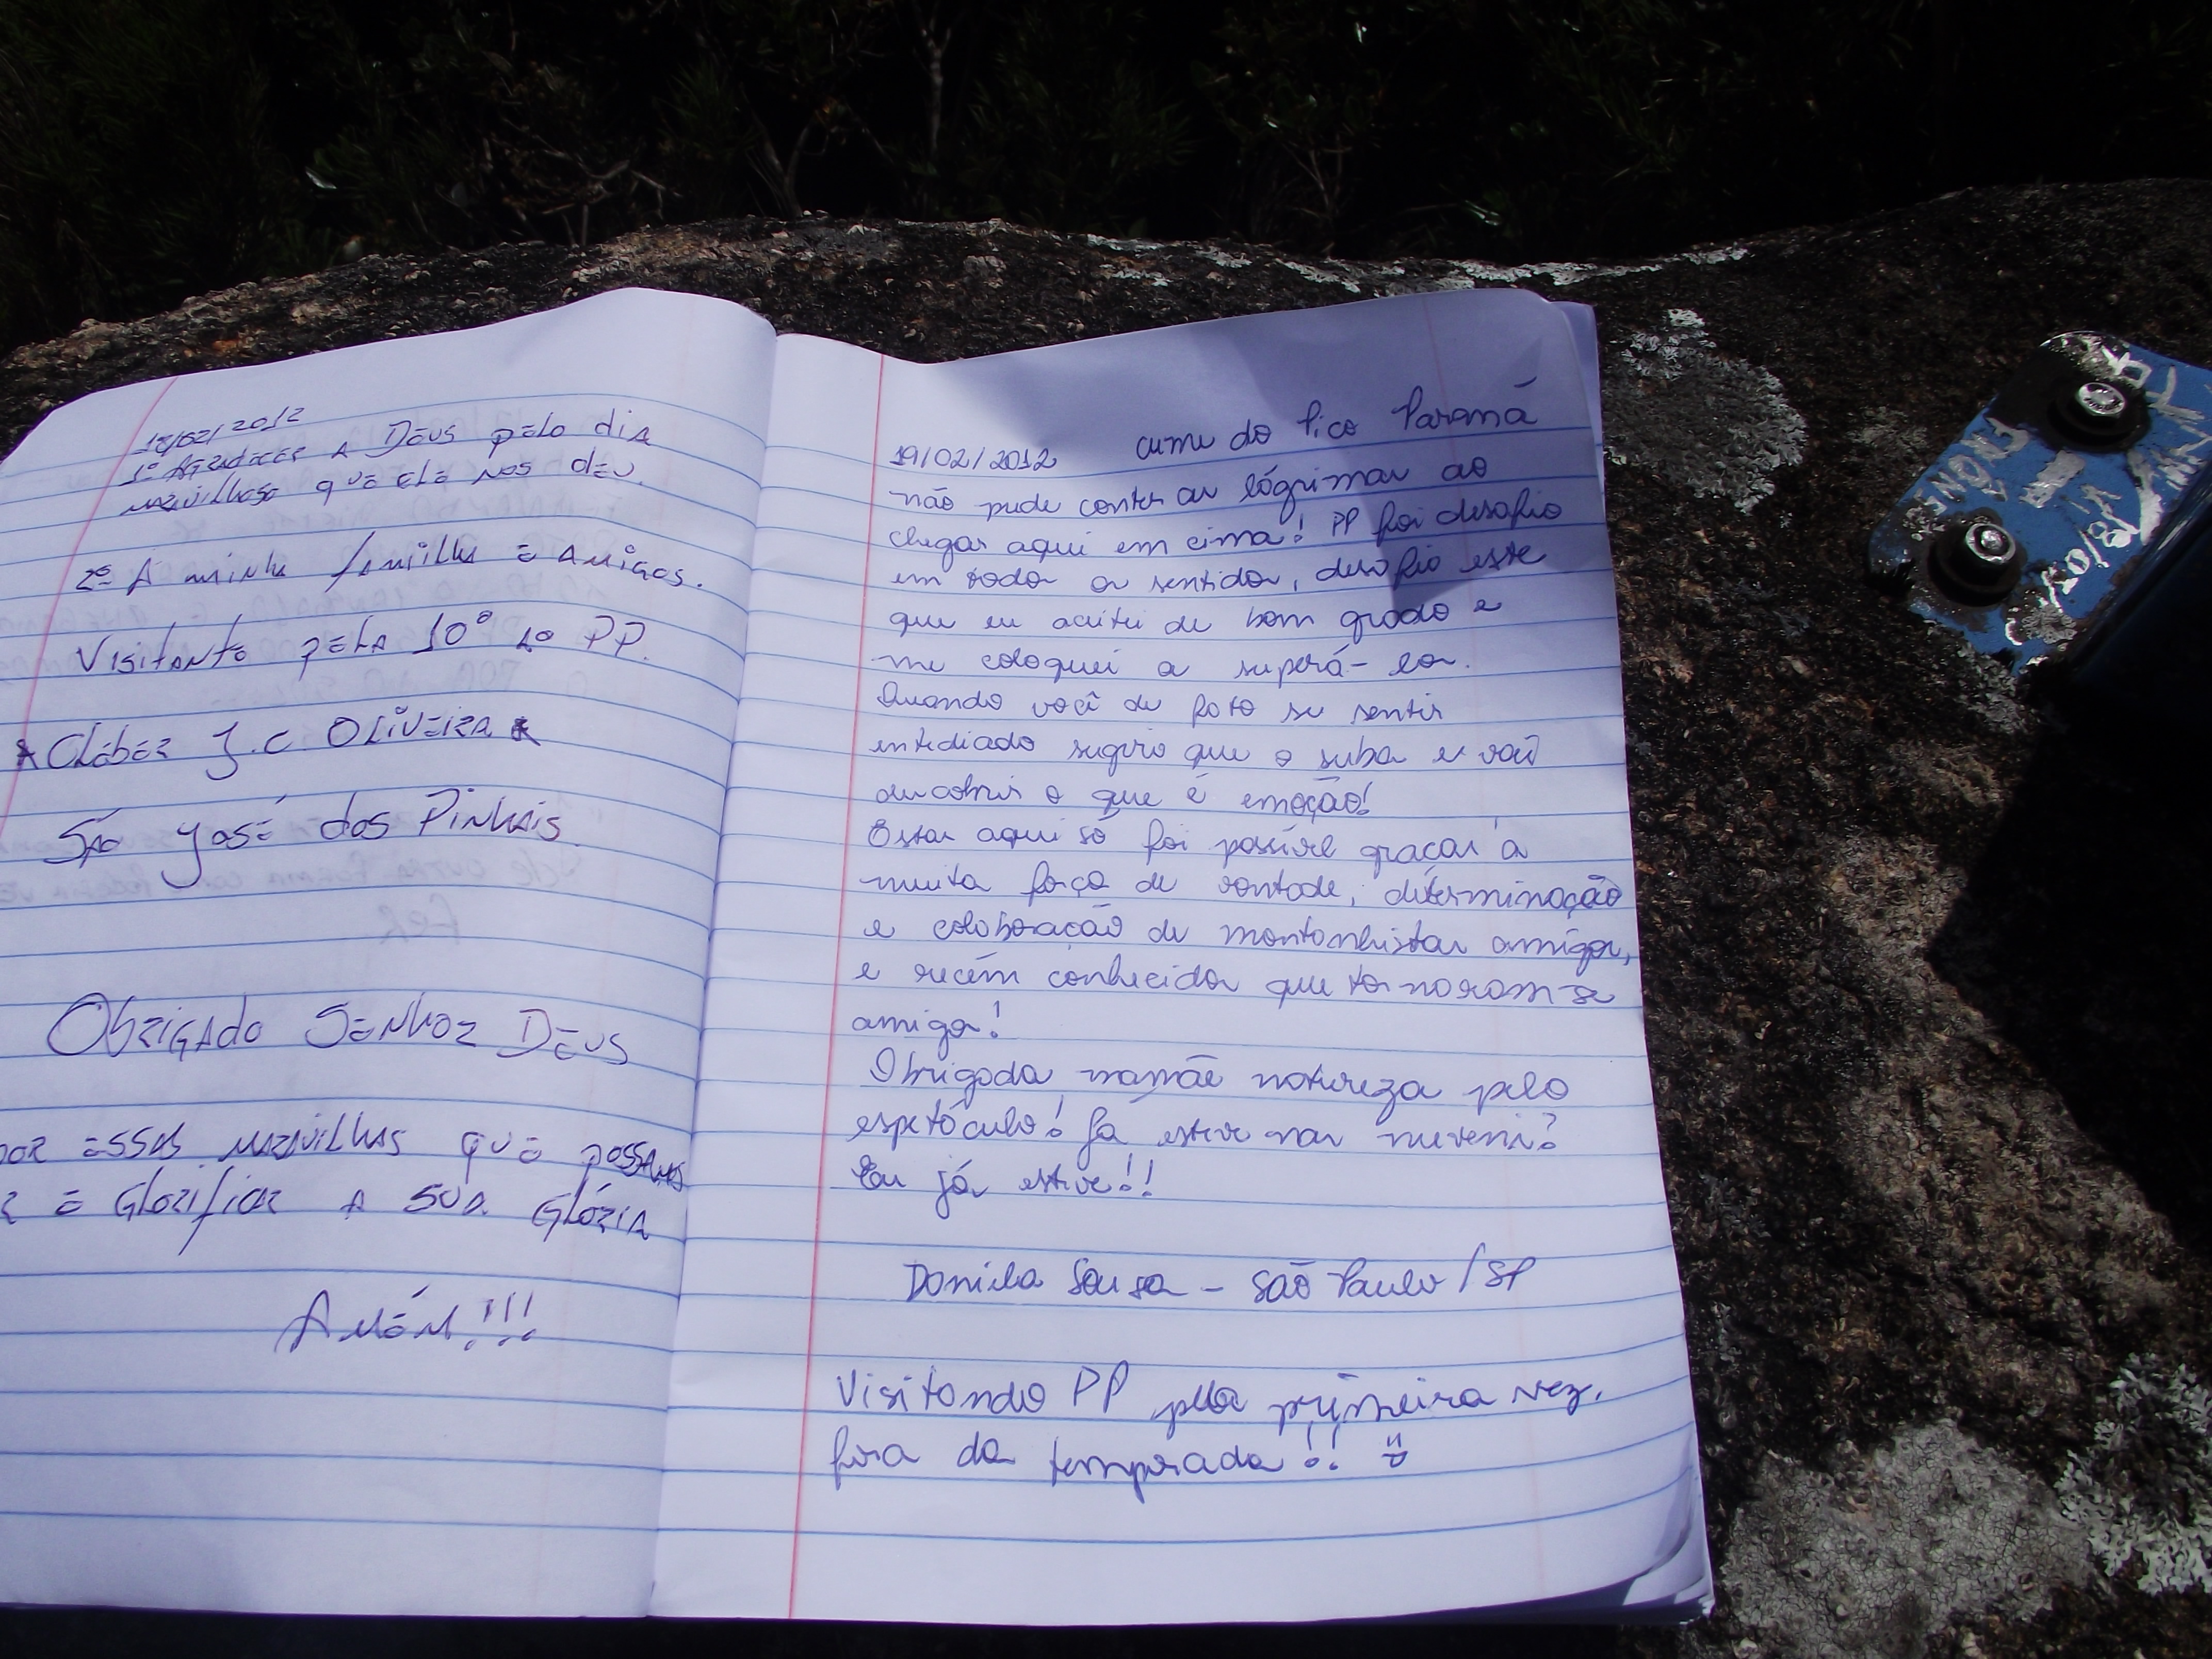 18/02/2012
1º Agradecer a Deus pelo dia
maravilhoso que ele nos deu.
2º A minha família e amigos.
Visitante pela 10º ao PP.
Cleber J.C. Oliveira
São José dos Pinhais
Obrigado Senhor Deus
por essas maravilhas que possamos
e Glorificar a sua Glória
Amém!!!
cume do Pico Paraná
19/02/2012
não pude conter as lágrimas ao
chegar aqui em cima! PP foi desafio
em todos os sentidos, desafio este
que eu aceitei de bom grado e
me coloquei a superá-los.
Quando você de fato se sentir
entediado sugiro que o suba e vai
descobrir o que é emoção!
Estar aqui só foi possível graças à
muita força de vontade, determinação
e colaboração de montanhistas amigos,
e recém conhecidos que tornaram-se
amigos!
Obrigada mamãe natureza pelo
espetáculo! Já esteve nas nuvens?
Eu já estive!!
Daniela Sousa - São Paulo/SP
Visitando PP pela primeira vez.
fora da temporada!! =D